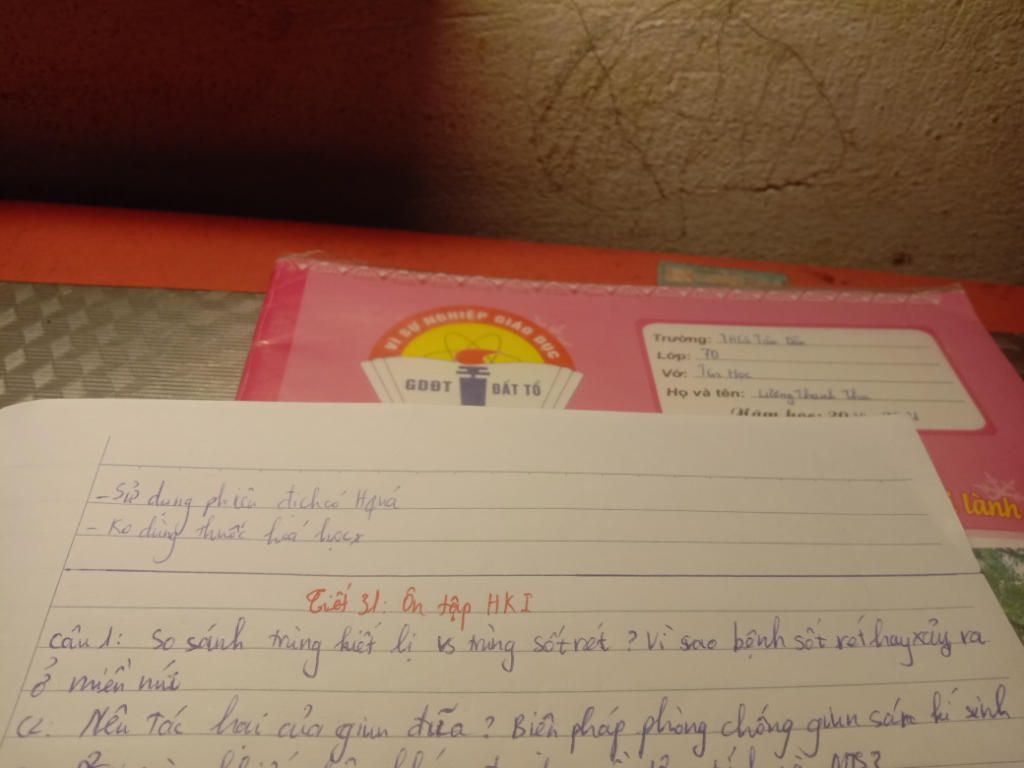 VÌ SỰ NGHIỆP GIÁO DỤC
GDĐT ĐẤT TỔ
Trường: THCS
Lớp: 7D
Vở: Tin Học
Họ và tên: Thanh
Năm học: 20
lành
- Sử dụng thiên địch có Hquả
- Ko dùng thuốc hoá học
Tiết 31: Ôn tập HKI
Câu 1: So sánh trùng kiết lị vs trùng sốt rét? Vì sao bệnh sốt rét hay xảy ra
ở miền núi
C2: Nêu Tác hại của giun đũa? Biên pháp phòng chống giun sán kí sinh